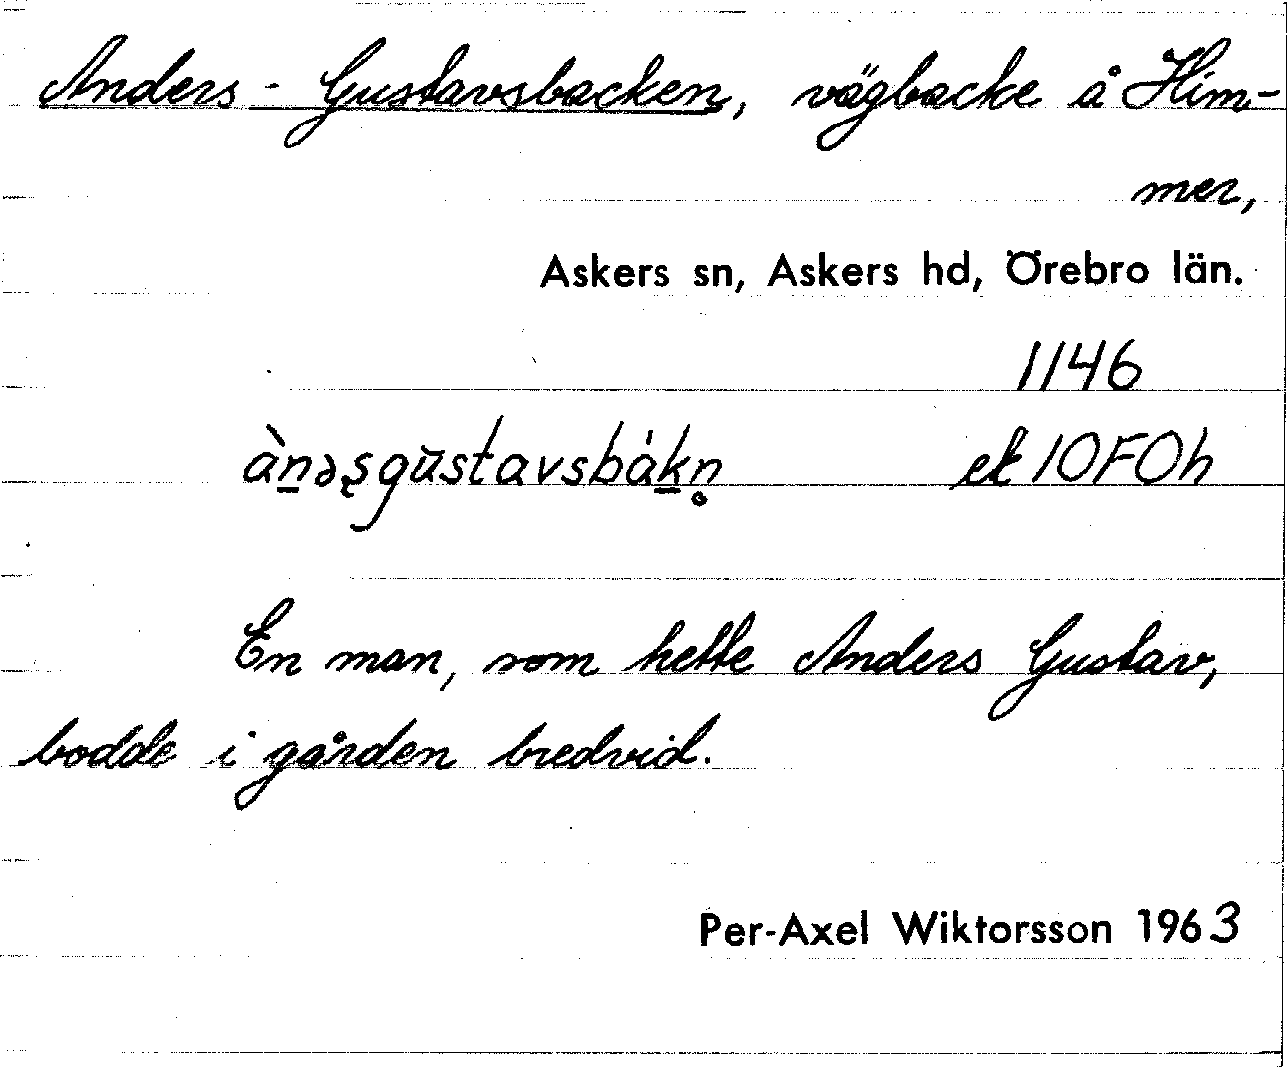 Anders-Gustavsbacken, vägbacke å Him-
mer,
Askers sn, Askers hd, Örebro län.
1146
ànəşgŭstavsbák̲n̥ ek 10F0h
En man, som hette Anders Gustav,
bodde i gården bredvid.
Per-Axel Wiktorsson 1963